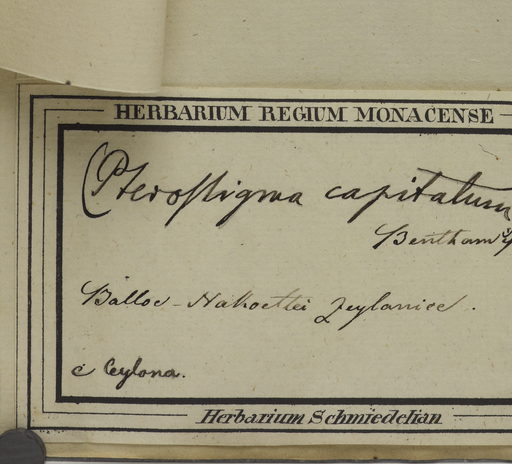 HERBARIUM REGIUM MONACENSE
(Pterostigma capitatum
Bentham
Balloe-Nakoettei Zeylanice.
e Ceylona.
Herbarium Schmiedelian